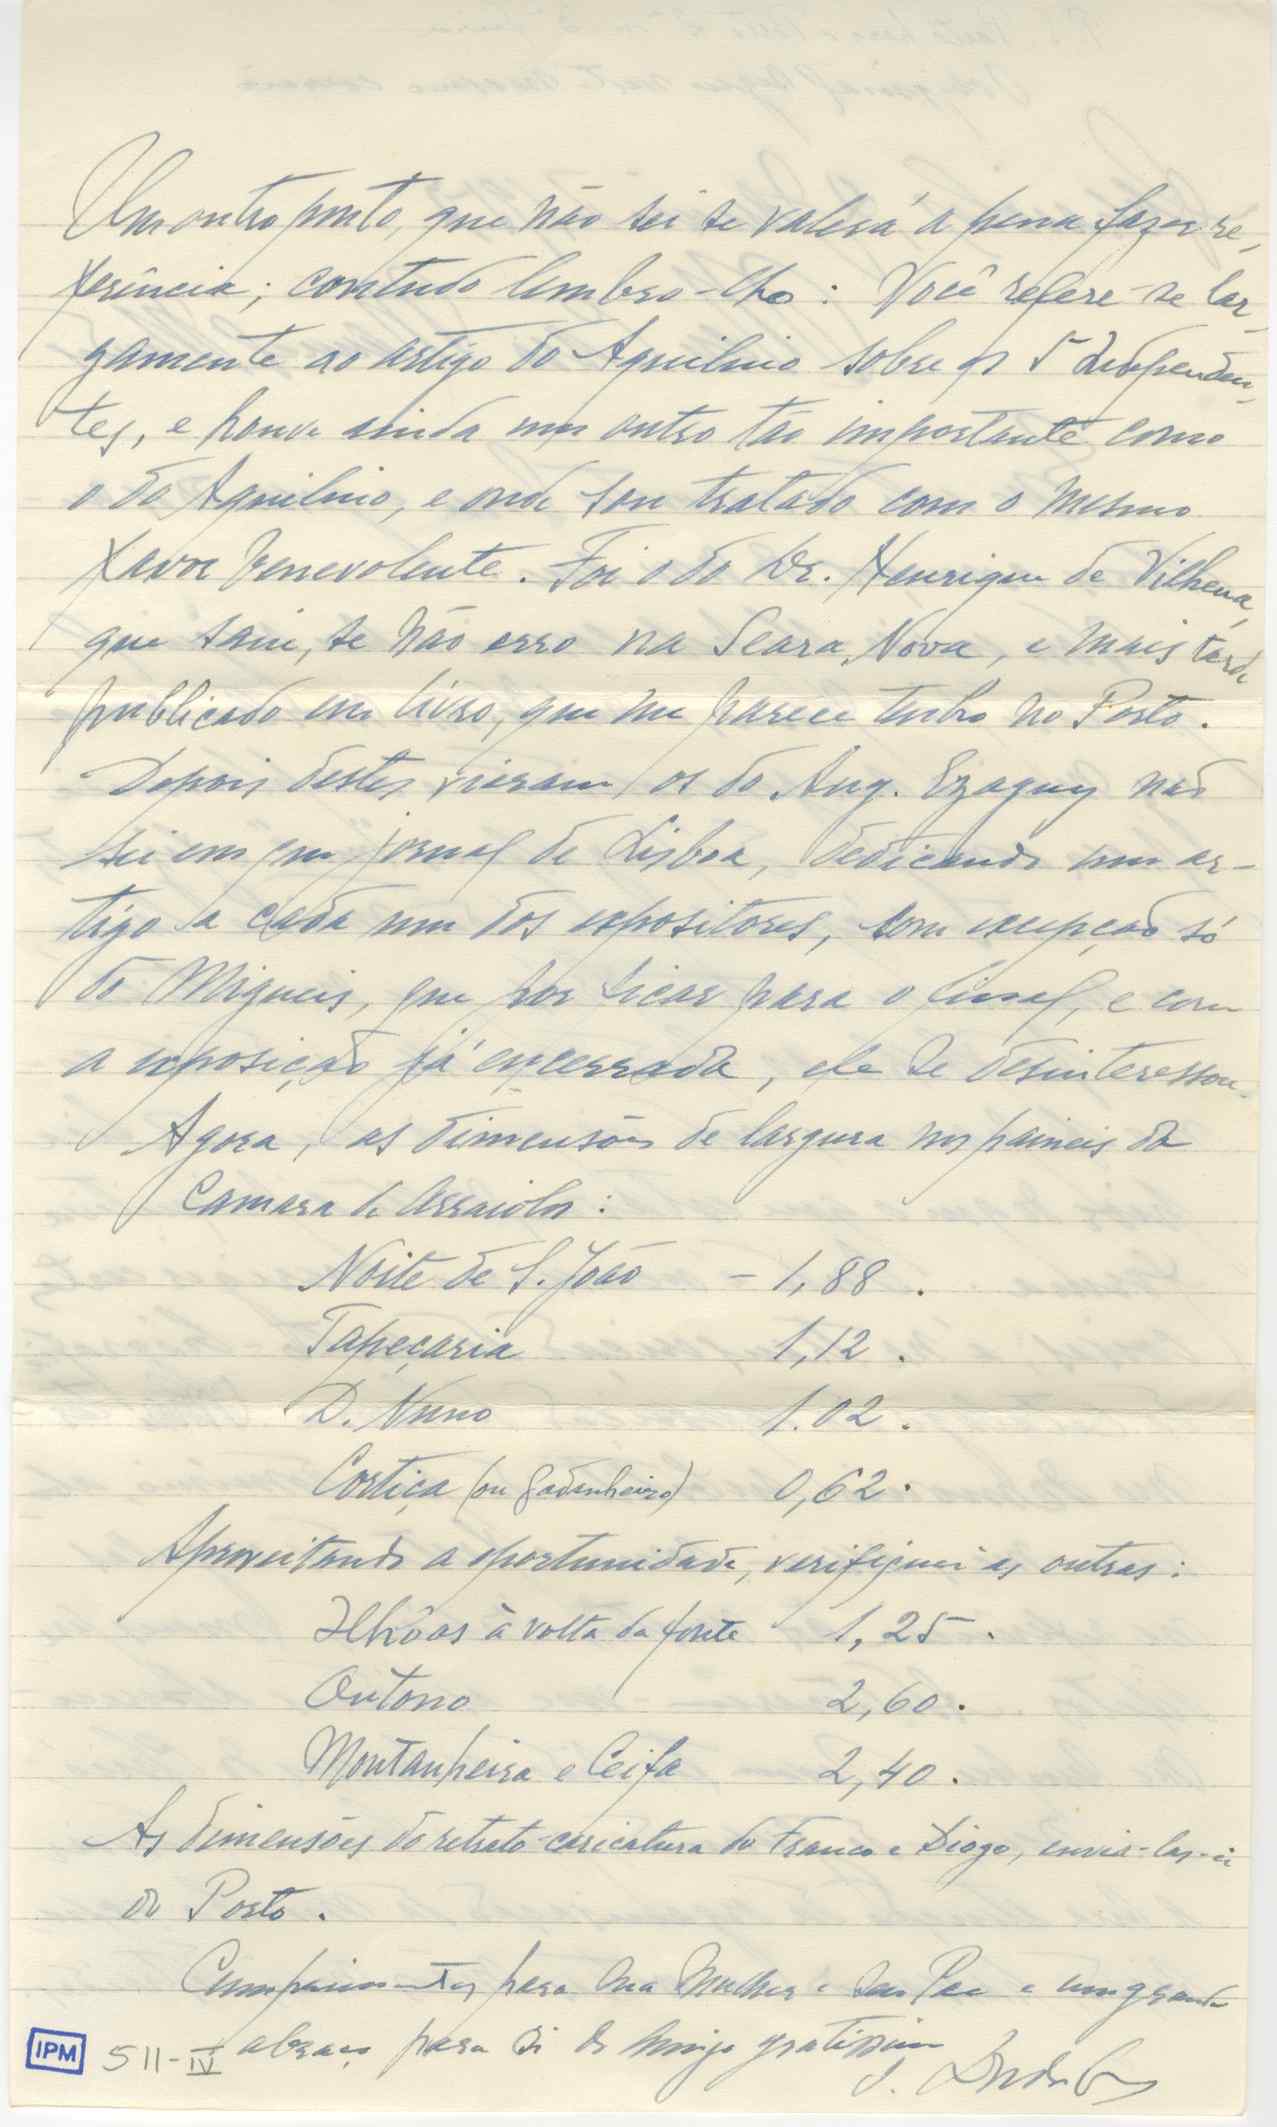 Um outro ponto, que não sei se valerá a pena fazer re-
ferência; contudo lembro-lho: Você refere-se lar-
gamente ao artigo do Aquilino sobre os 5 Independen-
tes, e houve ainda um outro tão importante como
o do Aquilino, e onde sou tratado com o mesmo
favor benevolente. Foi o do Dr. Henrique de Vilhena,
que saiu, se não erro na Seara Nova, e mais tarde
publicado em livro, que me parece tenho no Porto.
Depois destes vieram os do Aug. Ezaguy não
sei em que jornal de Lisboa, dedicando um ar-
tigo a cada um dos expositores, com excepção só
do Migueis, que por ficar para o final, e com
a exposição já encerrada, ele se desinteressou.
Agora, as dimensões de largura nos paineis da
Camara de Arraiolos:
Noite de S. João - 1,88.
Tapeçaria 1,12.
D. Nuno 1.02.
Cortiça (ou Gadanheiro) 0,62.
Aproveitando a oportunidade, verifiquei as outras:
Ilhôas à volta da fonte 1,25.
Outono 2,60.
Montanheira e Ceifa 2,40.
As dimensões do retrato-caricatura do Franco e Diogo, envia-las-ei
do Porto.
Cumprimentos para sua Mulher e seu Pae e um grande
abraço para si do amigo gratissimo
IPM 511-IV